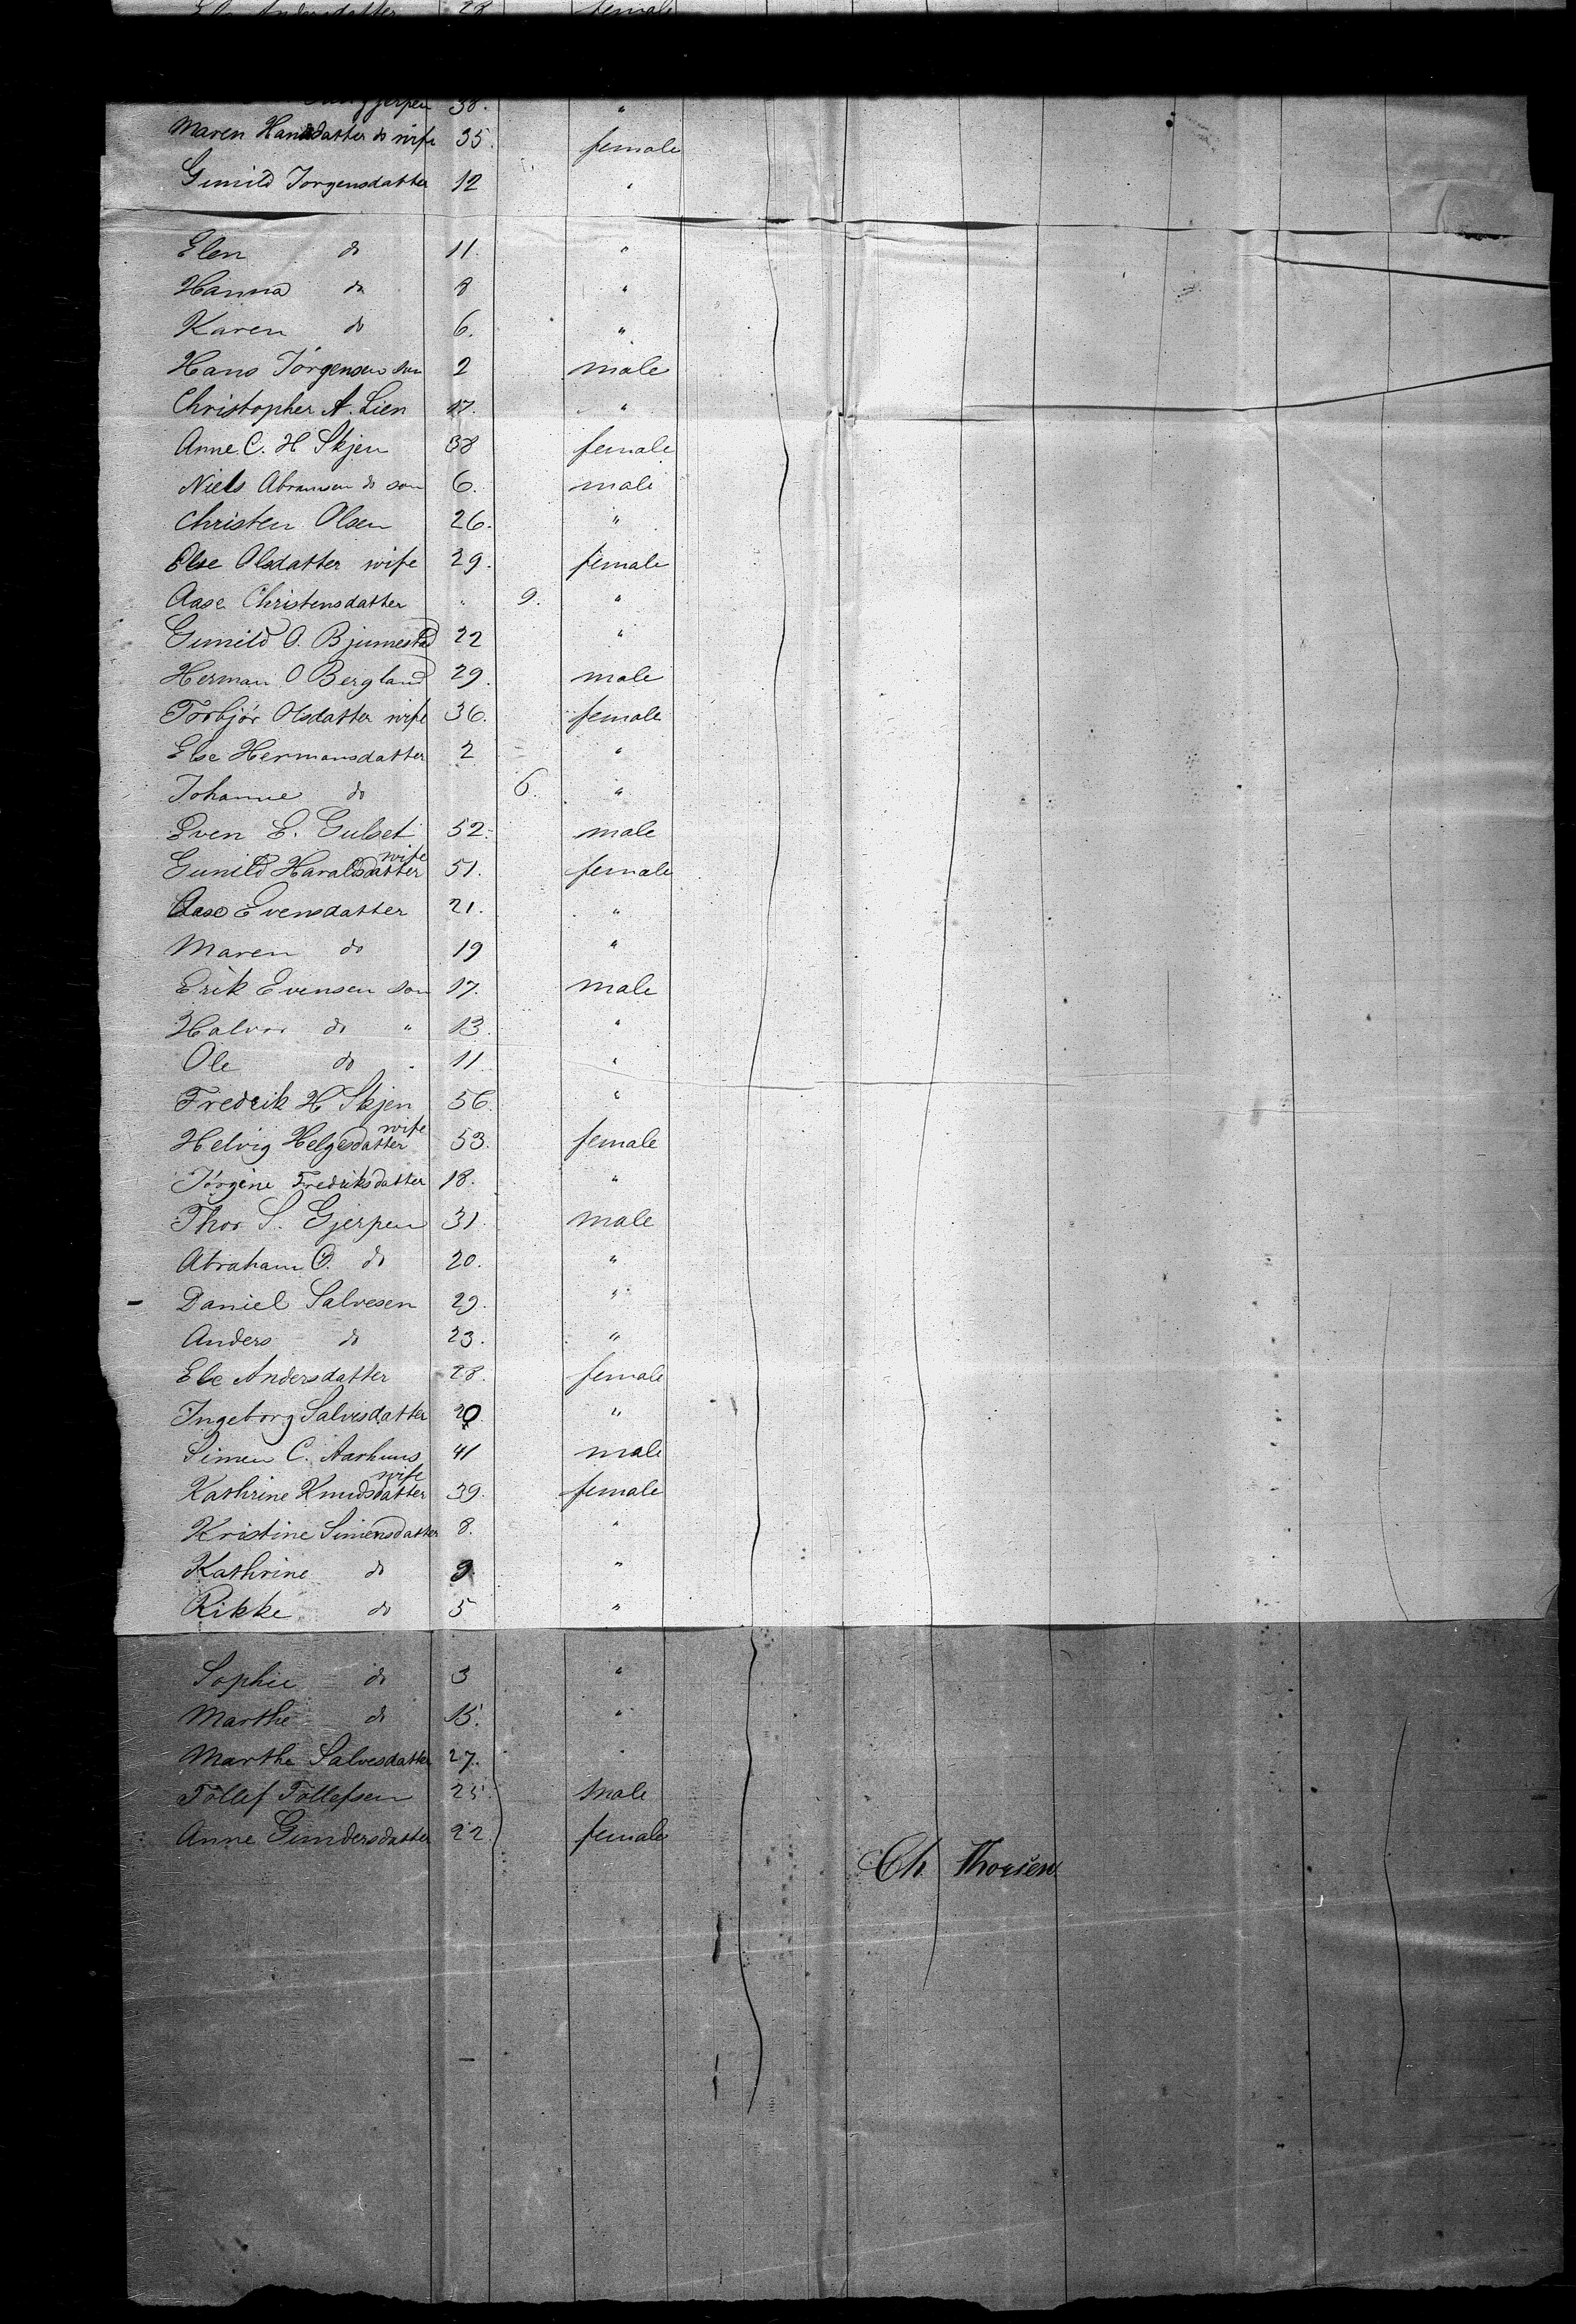 Else Andersdatter 28 female
Gjerpen 38. "
Maren Hansdatter do wife 35. female
Gunild Jorgensdatter 12 "
Elen do 11. "
Hanna do 8 "
Karen do 6. "
Hans Jörgensen son 2 male
Christopher A. Lien 17. "
Anne C. H Skjen 38 female
Niels Abramsen do son 6. male
Christen Olsen 26. "
Else Olsdatter wife 29. female
Aase Christensdatter " 9. "
Gunild O. Bjumestad 22 "
Herman O Bergland 29. male
Torbjør Olsdatter wife 36. female
Else Hermansdatter 2 "
Johanne do 6. "
Even E. Gulset 52. male
Gunild Haraldsdatter wife 51. female
Aase Evensdatter 21. "
Maren do 19 "
Erik Evensen son 17. male
Halvor do " 13. "
Ole do 11 "
Fredrik H Skjen 56. "
Helvig Helgesdatter wife 53. female
Jörgine Fredriksdatter 18. "
Thor S. Gjerpen 31. male
Abraham O. do 20. "
Daniel Salvesen 29. "
Anders do 23. "
Else Andersdatter 28. female
Ingeborg Salvesdatter 20. "
Simen C. Aarhuus 41 male
Kathrine Knudsdatter wife 39. female
Kristine Simensdatter 8. "
Kathrine do 9. "
Rikke do 5 "
Sophie do 3 "
Marthe do 15. "
Marthe Salvesdatter 27. "
Tollef Tollefsen 25. male
Anne Gundersdatter 22. female
Ch Thorsen